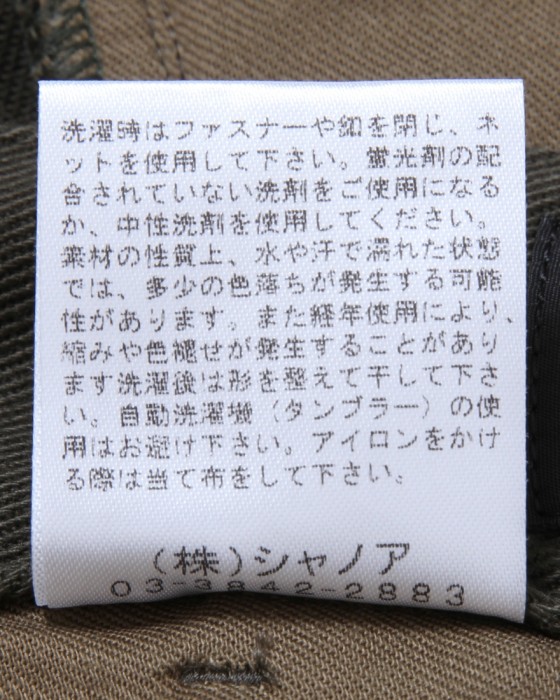 洗濯時はファスナーや釦を閉じ、ネ
ットを使用して下さい。蛍光剤の配
合されていない洗剤をご使用になる
か、中性洗剤を使用してください。
素材の性質上、水や汗で濡れた状態
では、多少の色落ちが発生する可能
性があります。また経年使用により、
縮みや色褪せが発生することがあり
ます洗濯後は形を整えて干して下さ
い。自動洗濯機（タンブラー）の使
用はお避け下さい。アイロンをかけ
る際は当て布をして下さい。
（株）シャノア
03-3842-2883